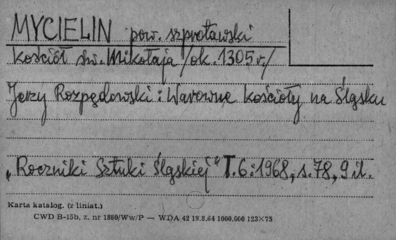 MYCIELIN pow. szprotawski
Kościół św. Mikołaja /ok. 1305 r./
Jerzy Rozpędowski: Warowne kościoły na Śląsku
„Roczniki Sztuki Śląskiej" T.6:1968, s.78, 9 il.
Karta katalog. (z liniat.)
CWD B-15b, z. nr 1880/Ww/P — WDA 42 18.8.64 1000.000 123×75